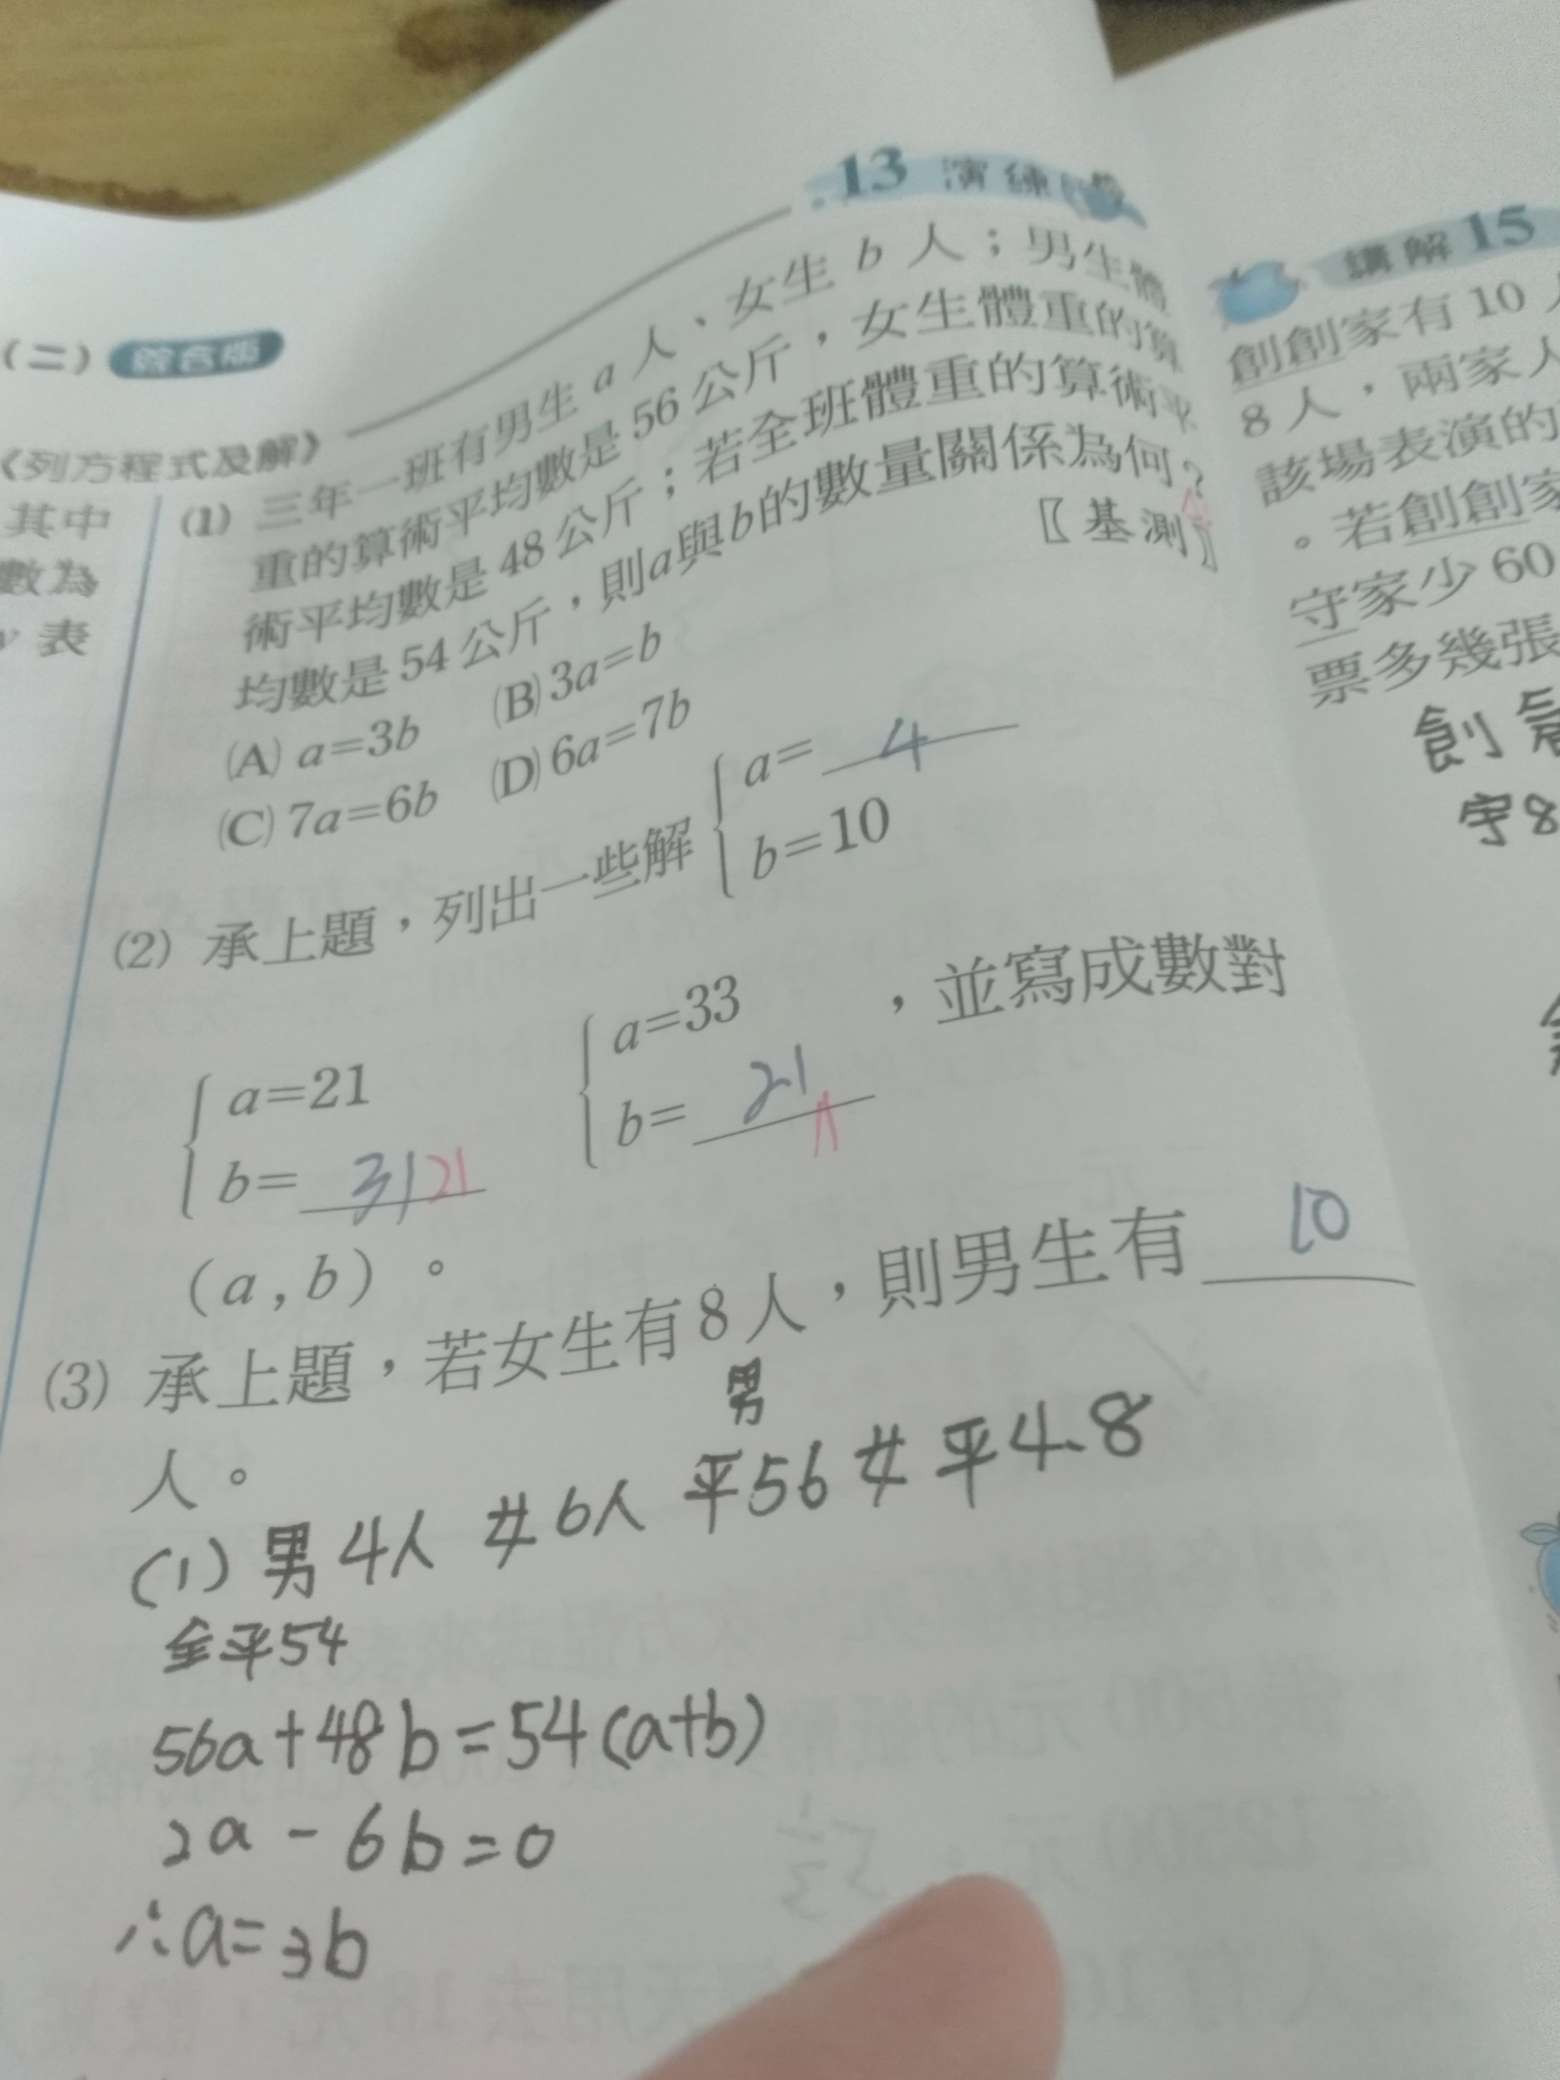 13 演練
(二) 綜合版
《列方程式及解》
其中
數為
表
(1) 三年一班有男生 a 人、女生 b 人；男生體
重的算術平均數是 56 公斤，女生體重的算
術平均數是 48 公斤；若全班體重的算術平
均數是 54 公斤，則 a 與 b 的數量關係為何？
〖基測〗
(A) a=3b (B) 3a=b
(C) 7a=6b (D) 6a=7b
(2) 承上題，列出一些解 { a= 4
b=10
{ a=21
b= 31 21
{ a=33
b= 21
，並寫成數對
(a , b)。
(3) 承上題，若女生有 8 人，則男生有 10
人。
男
(1) 男4人 女6人 平56 女平48
全平54
56a+48b=54(a+b)
2a-6b=0
∴a=3b
講解 15
創創家有 10
8 人，兩家人
該場表演的
。若創創家
守家少 60
票多幾張
創
守8